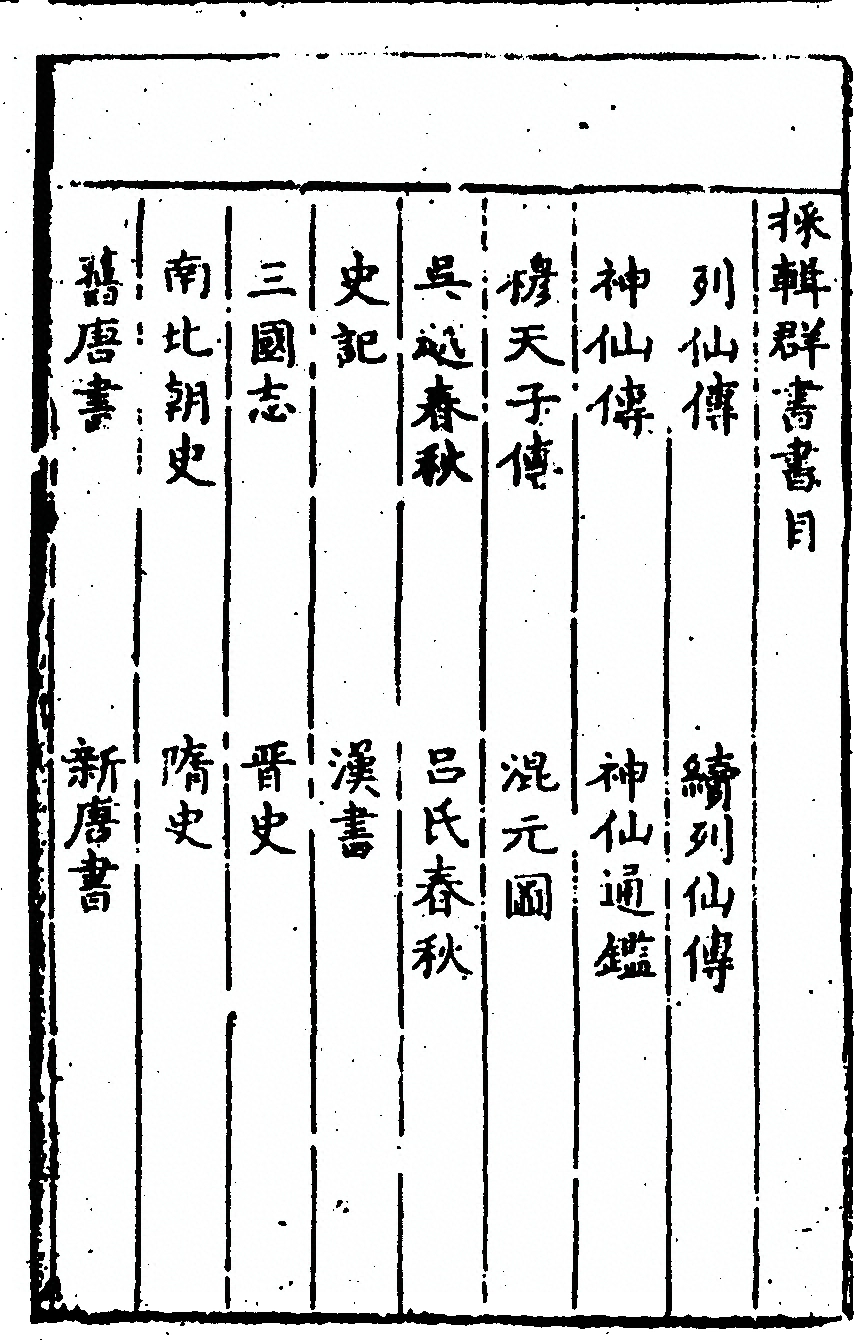 採輯群書書目
列仙傳 續列仙傳
神仙傳 神仙通鑑
穆天子傳 混元圖
吳越春秋 呂氏春秋
史記 漢書
三國志 晋史
南北朝史 隋史
舊唐書 新唐書